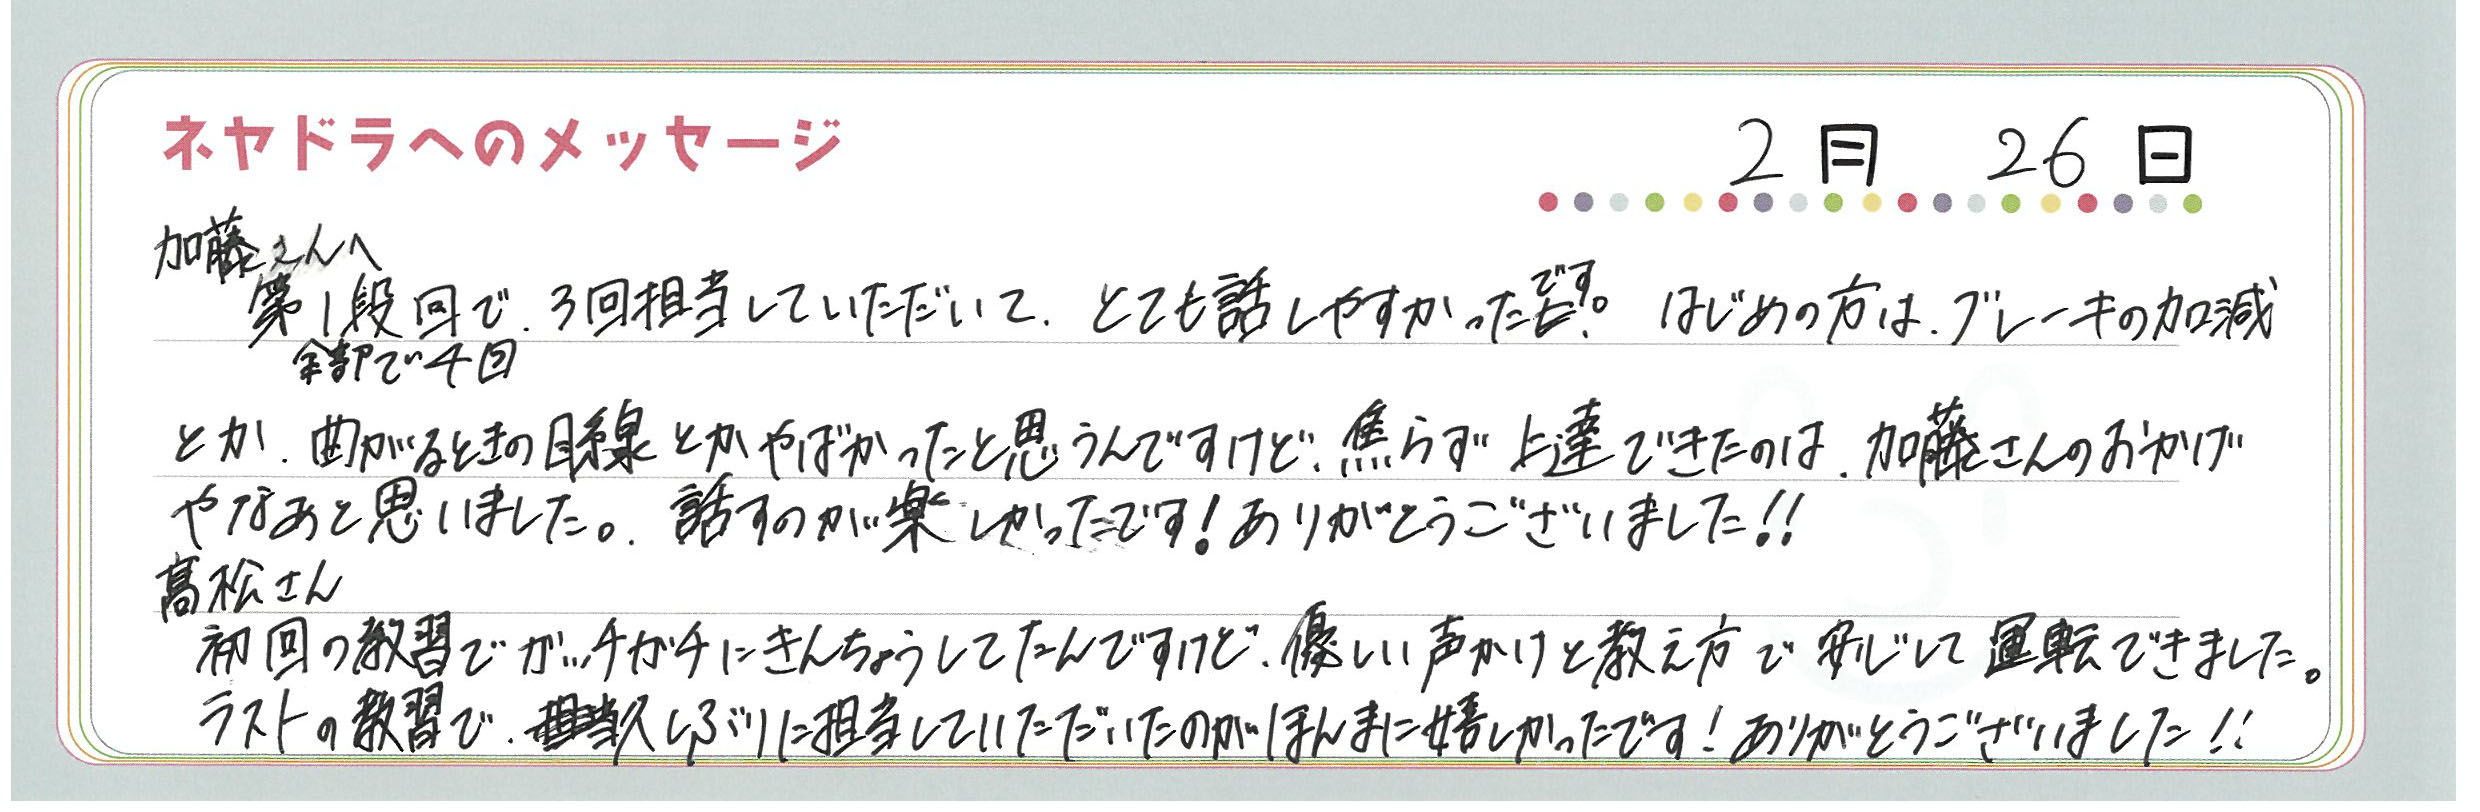 ネヤドラへのメッセージ
2月 26日
加藤さんへ
第1段回で、3回担当していただいて、とても話しやすかったです。はじめの方は、ブレーキの加減
全部で4回
とか、曲がるときの目線とかやばかったと思うんですけど、焦らず上達できたのは、加藤さんのおかげ
やなあと思いました。話すのが楽しかったです!ありがとうございました!!
髙松さん
初回の教習でガッチガチにきんちょうしてたんですけど、優しい声かけと教え方で安心して運転できました。
ラストの教習で、久しぶりに担当していただいたのがほんまに嬉しかったです!ありがとうございました!!